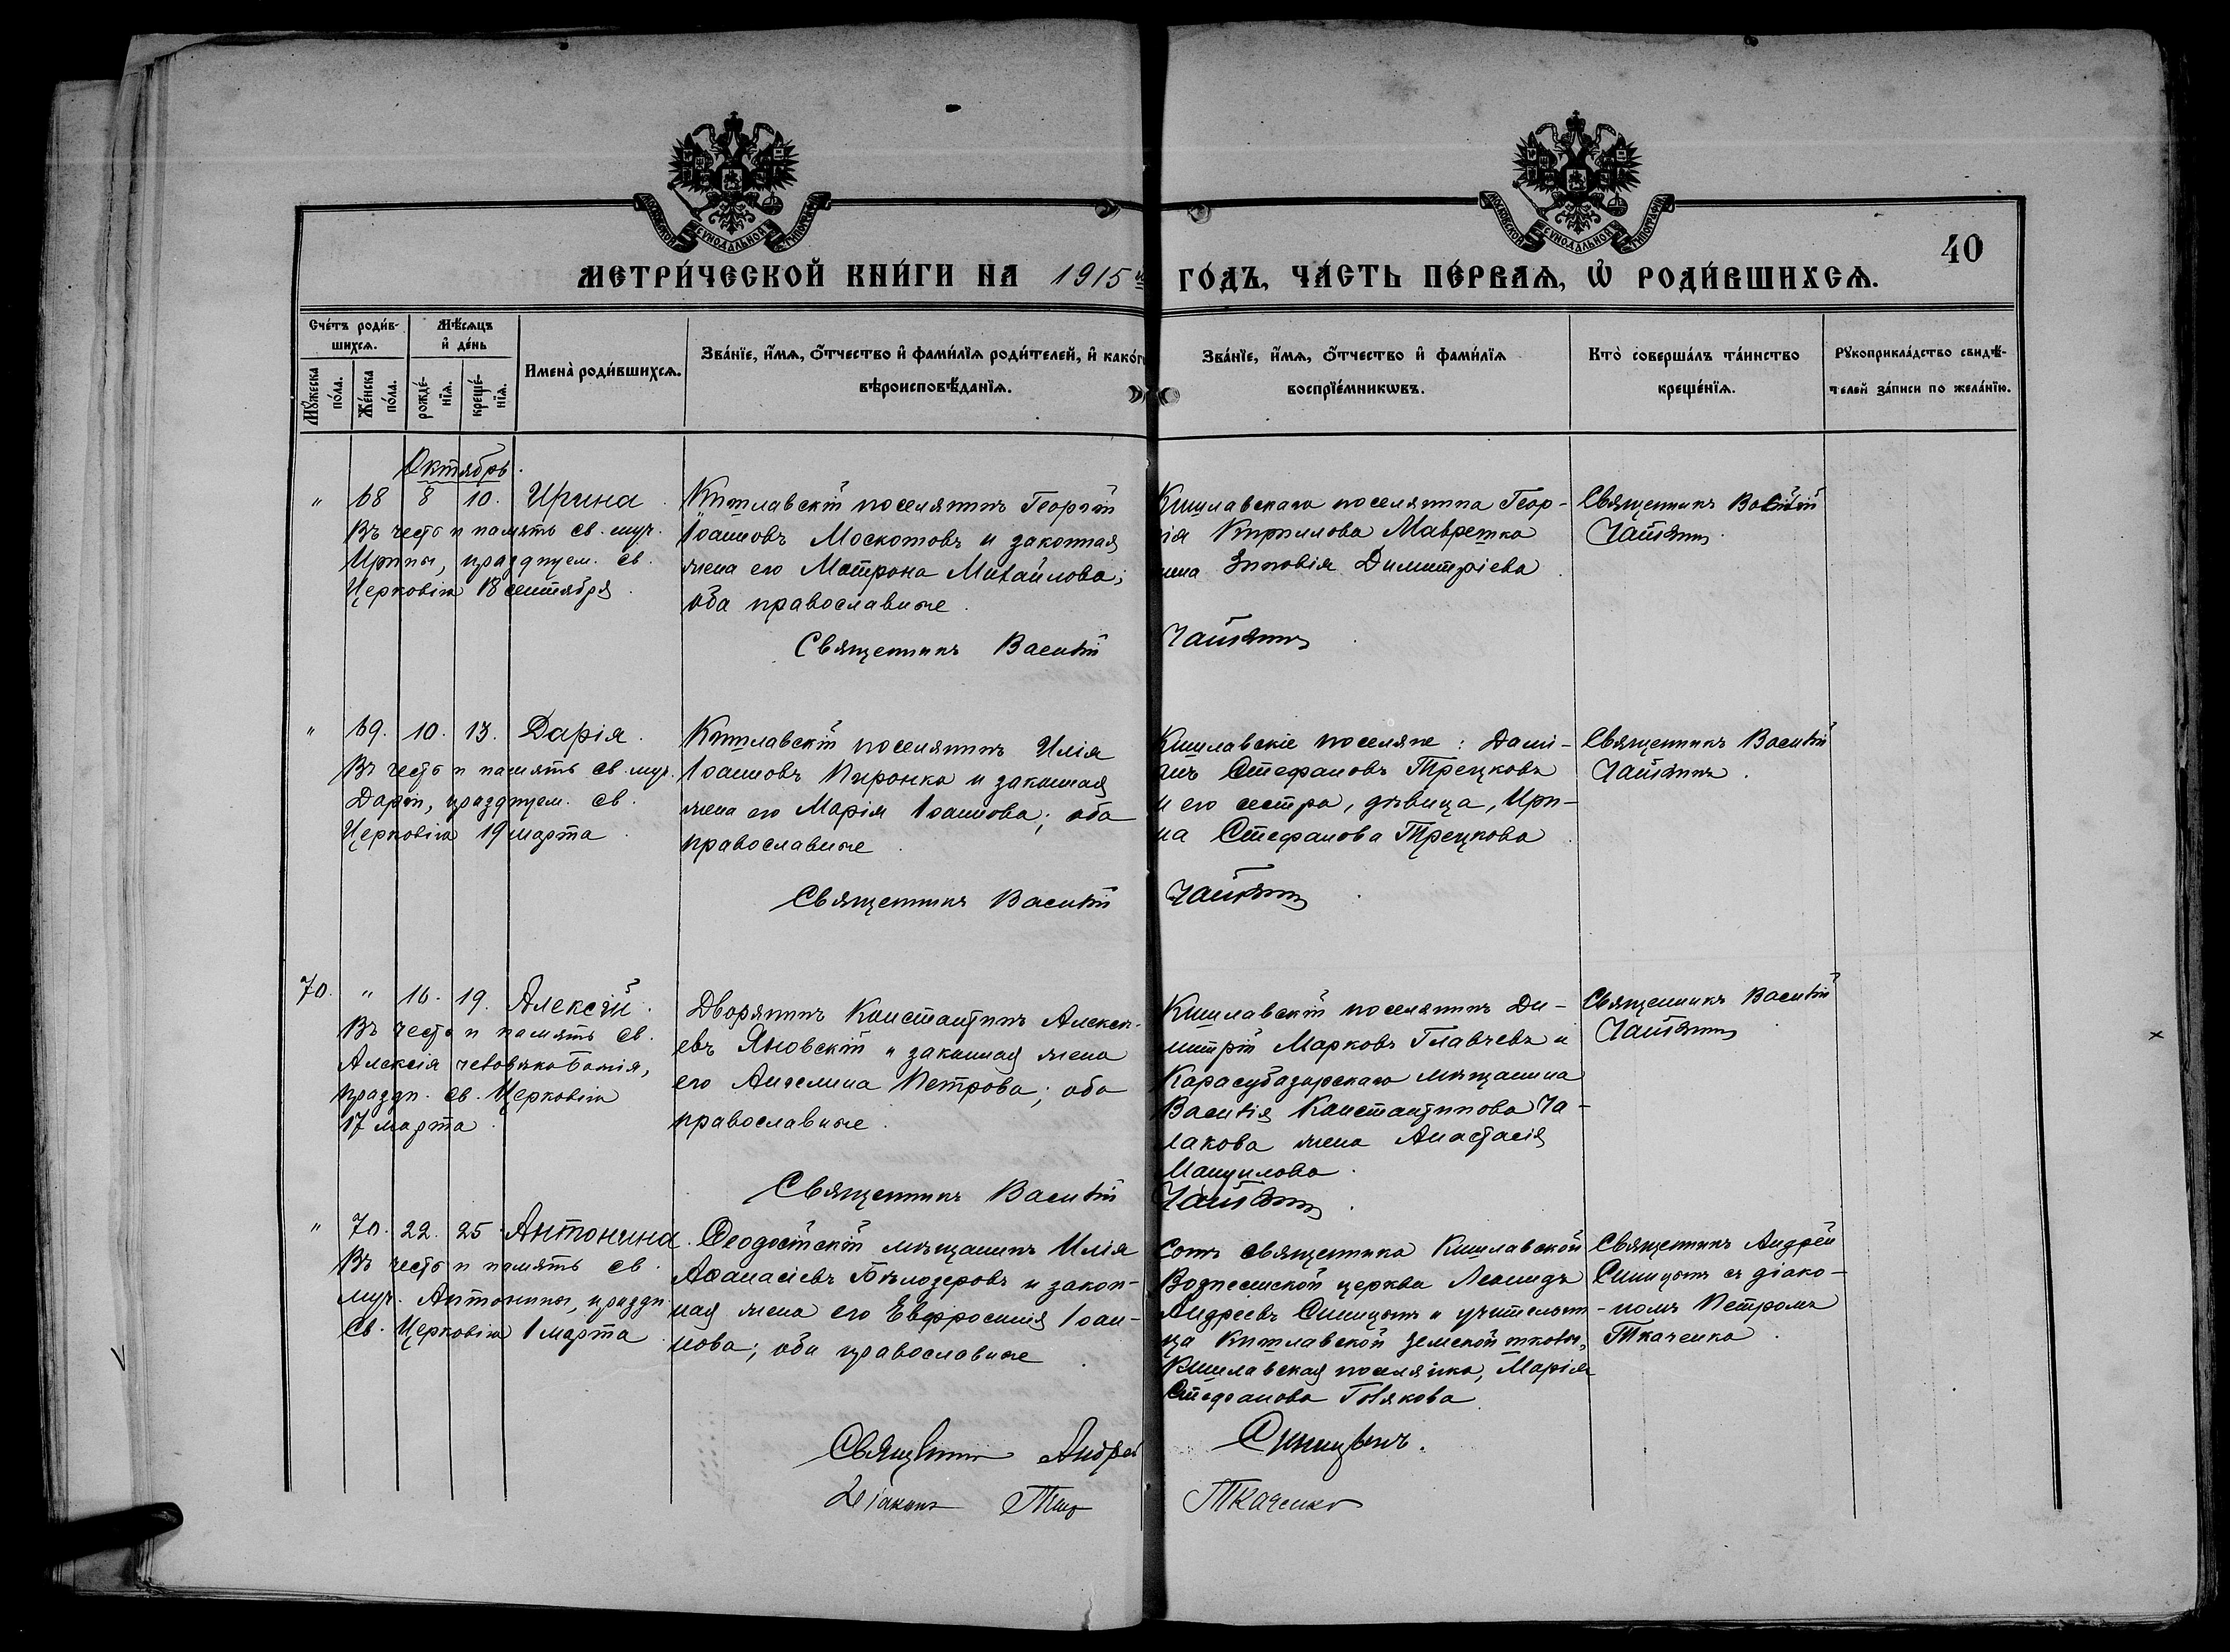 МОСКОВСКОЙ СѴНОДАЛЬНОЙ ТИПОГРАФІИ
МОСКОВСКОЙ СѴНОДАЛЬНОЙ ТИПОГРАФІИ
40
МЕТРИ́ЧЕСКОЙ КНИ́ГИ НА 1915й ГО́ДЪ, ЧА́СТЬ ПЕ́РВАѦ, Ѡ҆ РОДИ́ВШИХСѦ.
Сче́тъ роди́в-
шихсѧ.
Мѣ́сѧцъ
и҆ де́нь
Мꙋ́жеска по́ла.
Же́нска по́ла.
рожде́-нїѧ.
креще́-нїѧ.
Имена̀ роди́вшихсѧ.
Зва́нїе, и҆́мѧ, ѻ҆́тчество и҆ фами́лїѧ роди́телей, и҆ како́гѡ
вѣроисповѣ́данїѧ.
Зва́нїе, и҆́мѧ, ѻ҆́тчество и҆ фами́лїѧ
воспрїе́мникѡвъ.
Кто̀ соверша́лъ та́инство
креще́нїѧ.
Рꙋкоприкла́дство свидѣ́-
телей за́писи по жела́нїю.
Октябрь.
" 68 8 10. Ирина.
Въ честь и память св. муч.
Ирины, празднуем. св.
Церковію 18 сентября.
Кишлавскій поселянинъ Георгій
Іоанновъ Москотовъ и законная
жена его Матрона Михайлова;
оба православные.
Священникъ Василій
Кишлавскаго поселянина Геор-
гія Кириллова Мавретка
жена Зиновія Димитріева
Священникъ Василій
" 69. 10. 13. Дарія.
Въ честь и память св. муч.
Даріи, празднуем. св.
Церковію 19 марта.
Кишлавскій поселянинъ Илія
Іоанновъ Пиронко и законная
жена его Марія Іоаннова; оба
православные.
Священникъ Василій
Кишлавскіе поселяне: Дамі-
анъ Стефановъ Трецковъ
и его сестра, дѣвица, Ири-
на Стефанова Трецкова.
Священникъ Василій
70. " 16. 19. Алексій.
Въ честь и память св.
Алексія человѣка Божія,
праздн. св. Церковію
17 марта.
Дворянинъ Константинъ Алексѣ-
евъ Яновскій и законная жена
его Ангелина Петрова; оба
православные.
Священникъ Василій
Кишлавскій поселянинъ Ди-
митрій Марковъ Главчевъ и
Карасубазарскаго мѣщанина
Василія Константинова Ча-
лакова жена Анастасія
Священникъ Василій
" 70. 22. 25 Антонина.
Въ честь и память св.
муч. Антонины, праздн.
св. Церковію 1 марта.
Ѳеодосійскій мѣщанинъ Илія
Аѳанасіевъ Бѣлозеровъ и закон-
ная жена его Евфросинія Іоан-
нова; оба православные.
Священникъ Андрей
Діаконъ
Сынъ священника Кишлавской
Вознесенской церкви Леонидъ
Андреевъ Синицынъ и учительни-
ца Кишлавской земской школы,
Кишлавская поселянка, Марія
Стефанова Голякова
Синицынъ.
Ткаченко
Священникъ Андрей
Синицынъ съ діако-
номъ Петромъ
Ткаченко.